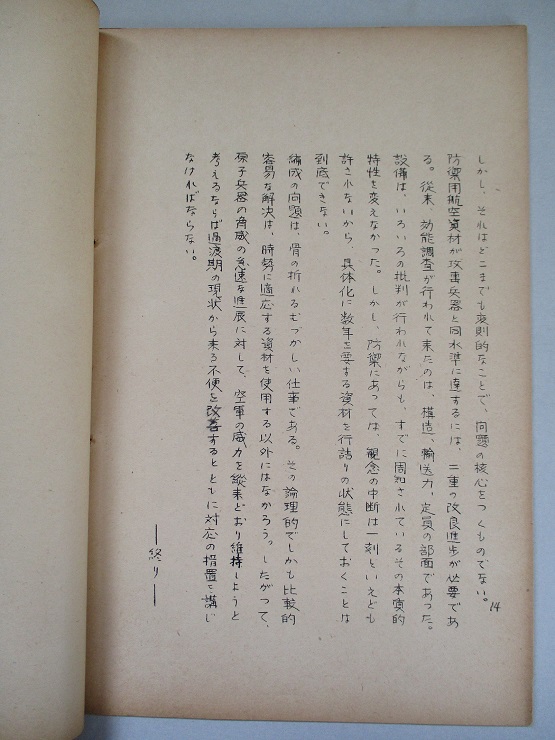 しかし、それはどこまでも変則的なことで、問題の核心をつくものでない。
防禦用航空資材が攻撃兵器と同水準に達するには、二重の改良進歩が必要であ
る。従来、効能調査が行われて来たのは、構造、輸送力、定員の部面であった。
設備は、いろいろの批判が行われながらも、すでに周知されているその本質的
特性を変えなかった。しかし、防禦にあっては、観念の中断は一刻といえども
許されないから、具体化に数年を要する資材を行詰りの状態にしておくことは
到底できない。
編成の問題は、骨の折れるむづかしい仕事である。その論理的でしかも比較的
容易な解決は、時勢に適応する資材を使用する以外にはなかろう。したがって、
原子兵器の脅威の急速な進展に対して、空軍の威力を縦来どおり維持しようと
考えるならば過渡期の現状から来る不便を改善するとともに対応の措置を講じ
なければならない。
—終り—
14